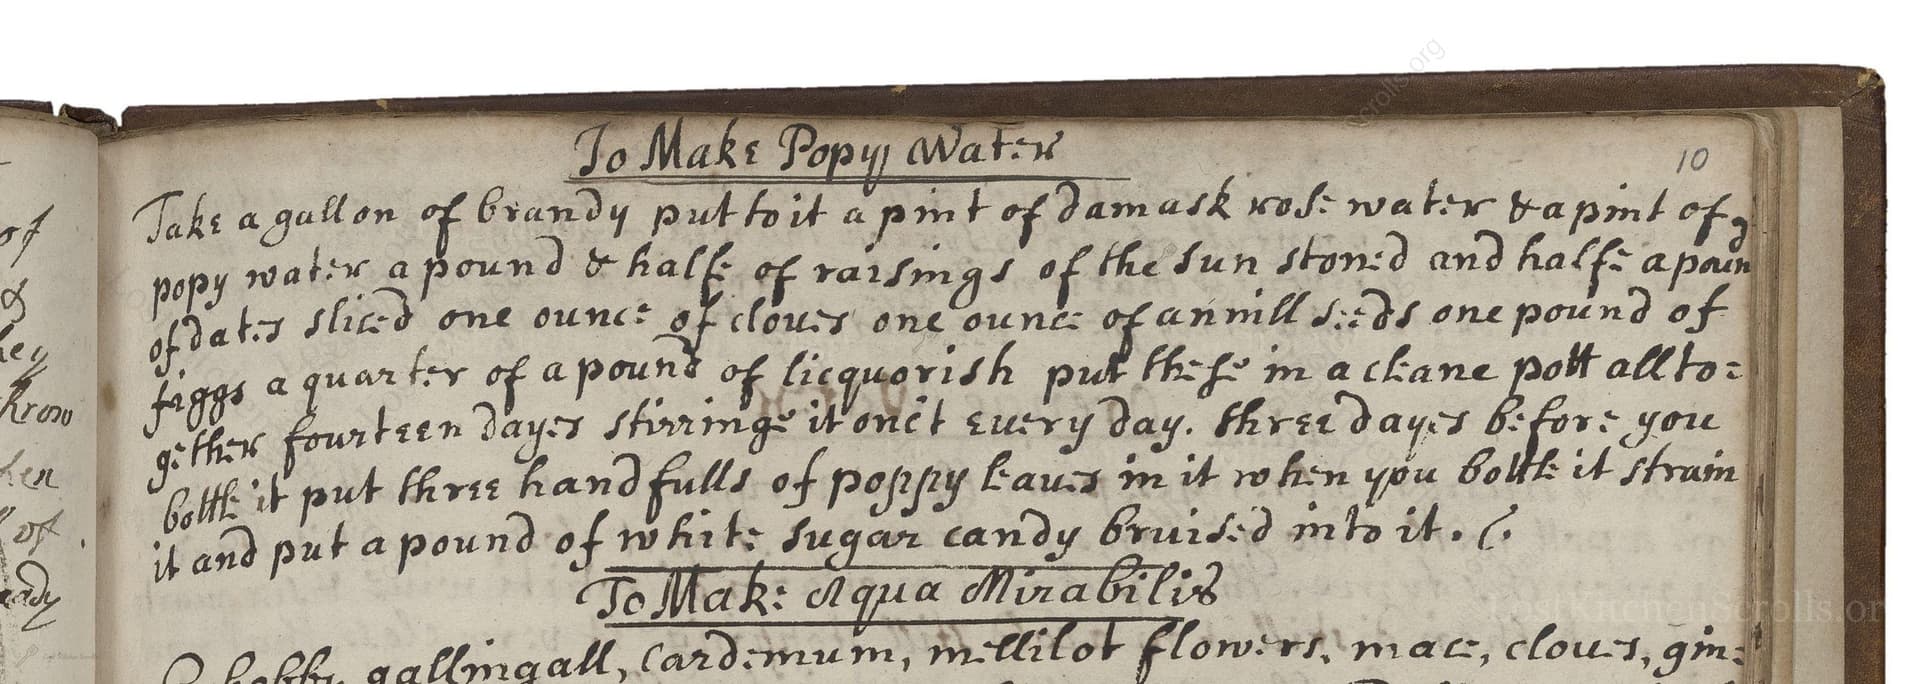 To Make Popy Water
10
Take a gallon of brandy put to it a pint of damask rose water & a pint of
popy water a pound & halfe of raisings of the sun stoned and halfe a poun
of dates sliced one ounce of cloves one ounce of annill seeds one pound of
figgs a quarter of a pound of licquorish put these in a cleane pott all to=
gether fourteen dayes stirringe it onct every day. three dayes before you
bottle it put three handfulls of poppy leaves in it when you bottle it strain
it and put a pound of white sugar candy bruised into it.
To Make Aqua Mirabilis
gallingall, Cardemum, mellilot flowers, mace, cloves, gin=
of
&
know
ken
of
LostKitchenScrolls.or
scrolls.org